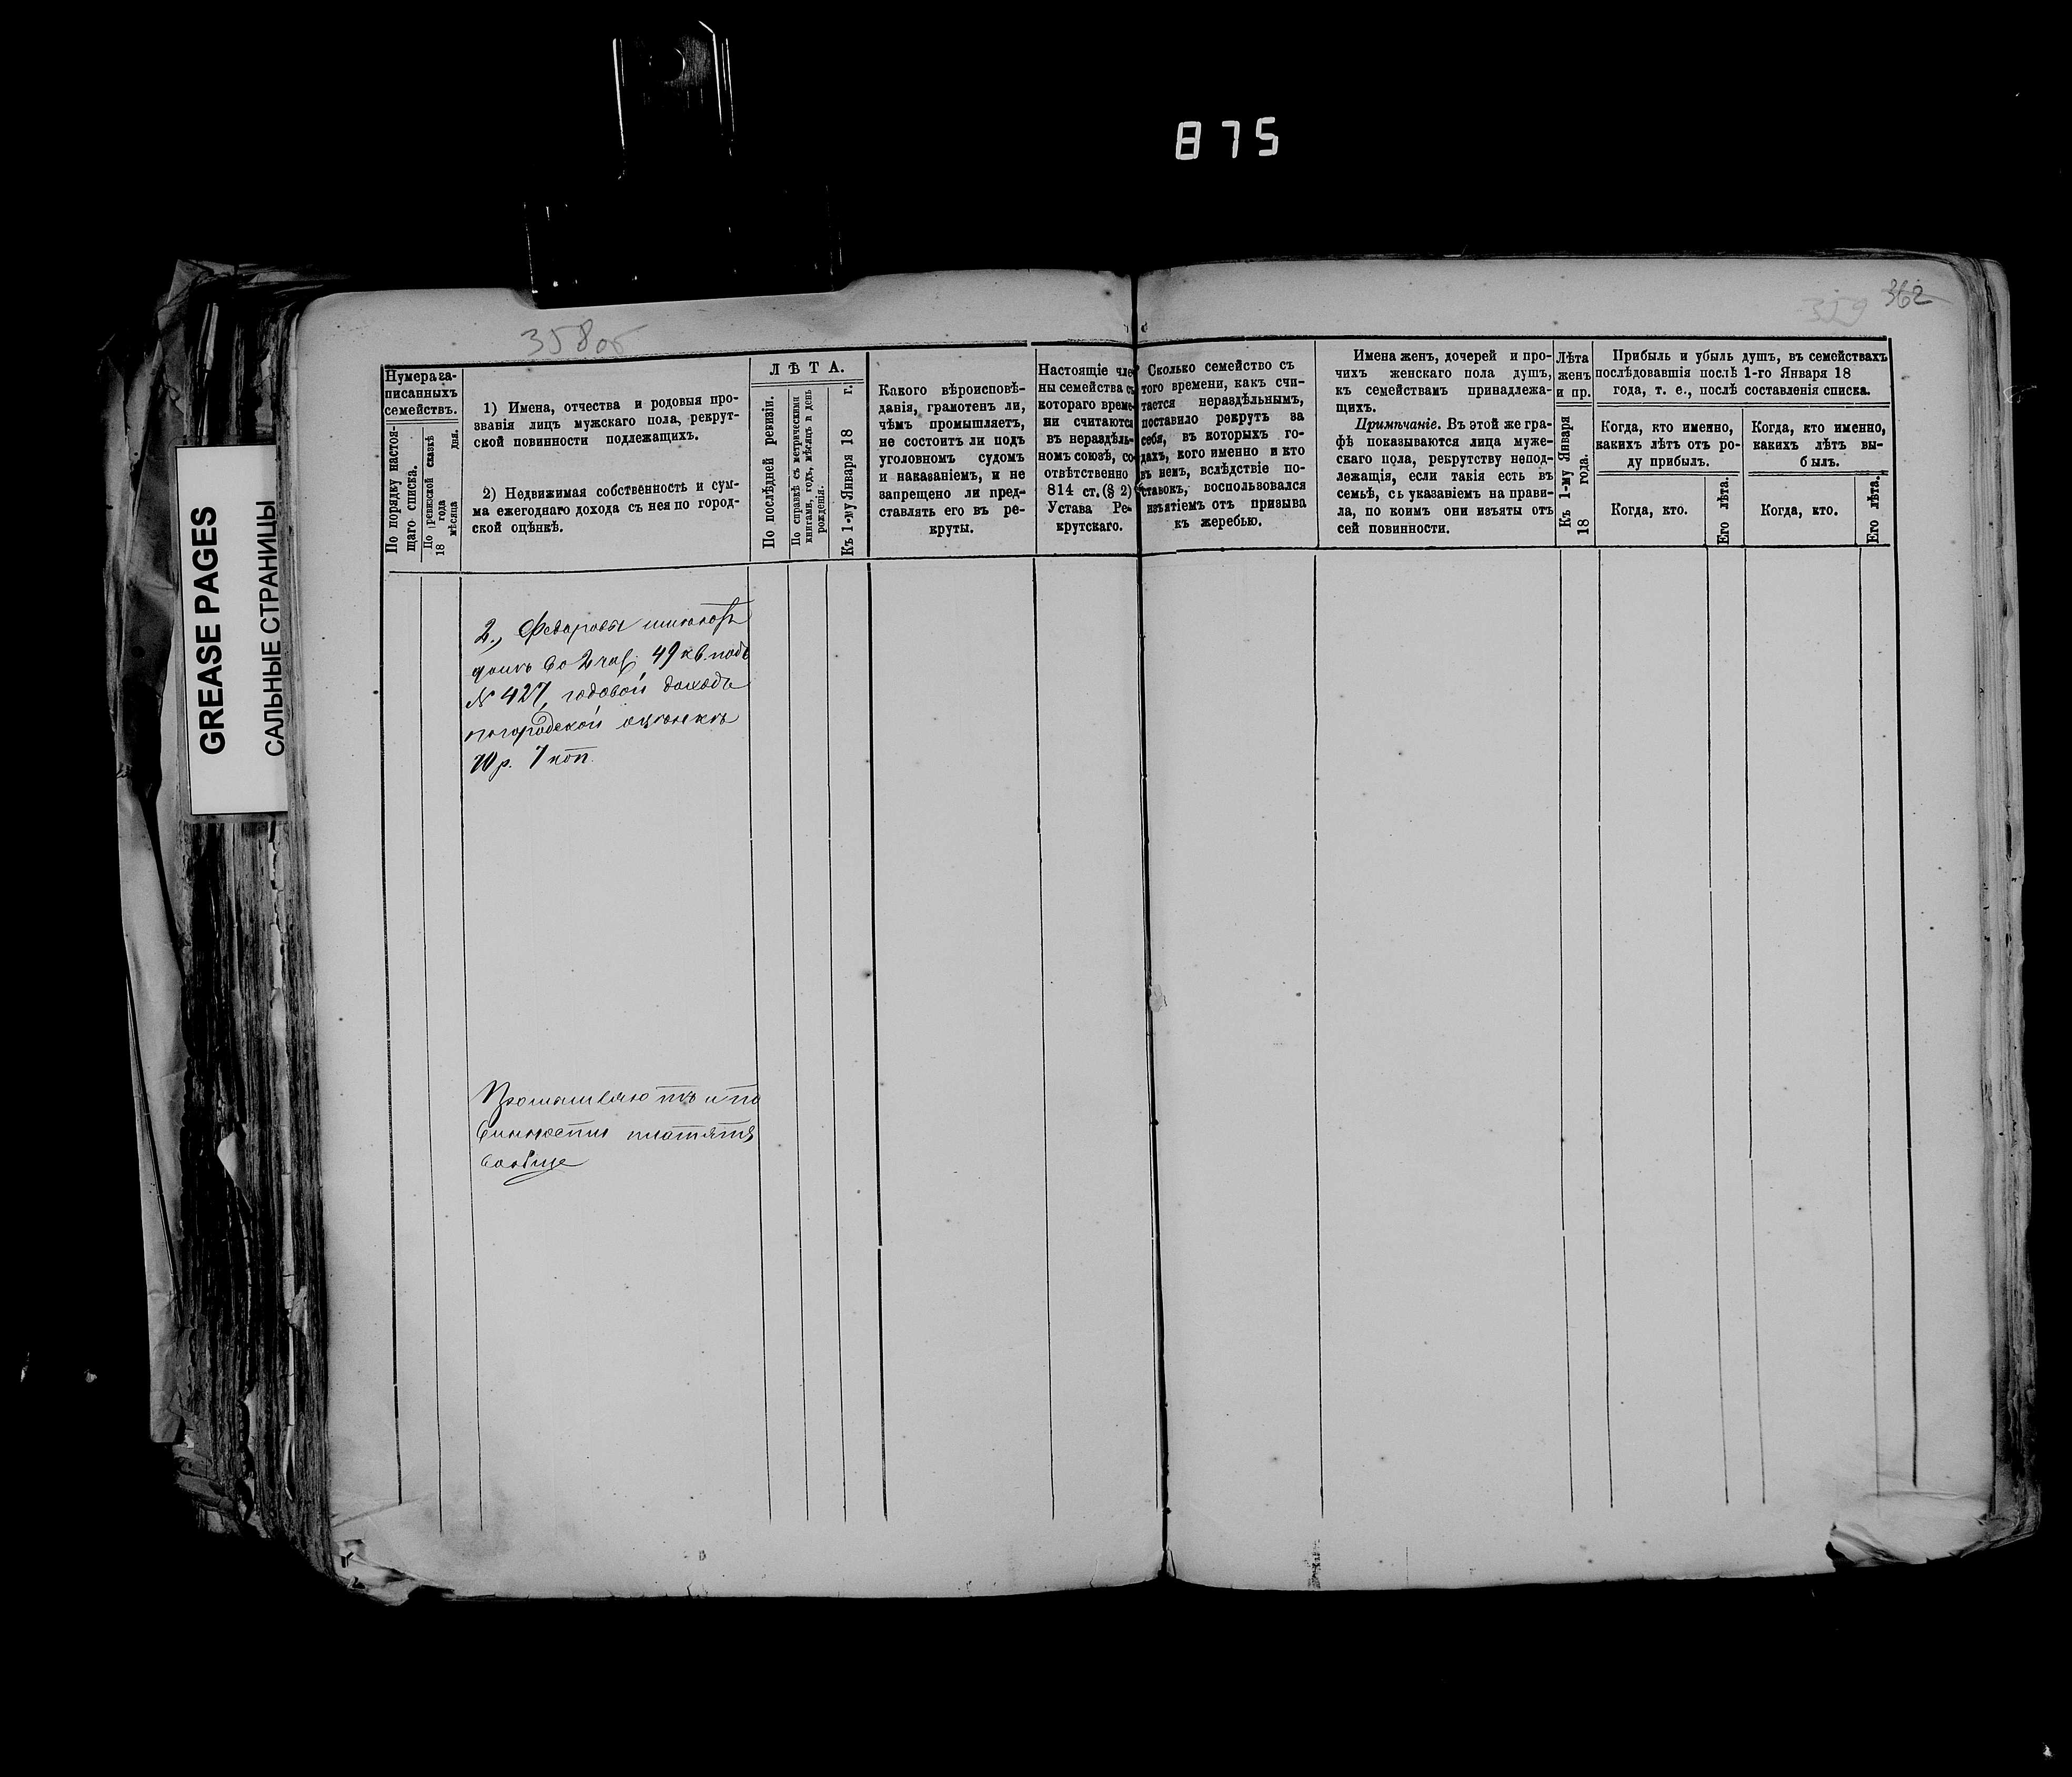 875
GREASE PAGES
САЛЬНЫЕ СТРАНИЦЫ
358об
359 362
Нумера за-
писанныхъ
семействъ.
По порядку настоя-
щаго списка.
По ревизской сказкѣ
18 года
мѣсяца дня.
1) Имена, отчества и родовыя про-
званія лицъ мужскаго пола, рекрут-
ской повинности подлежащихъ.
2) Недвижимая собственность и сум-
ма ежегоднаго дохода съ нея по город-
ской оцѣнкѣ.
ЛѢТА.
По послѣдней ревизіи.
По справкѣ съ метрическими
книгами, годъ, мѣсяцъ и день
рожденія.
Къ 1-му Января 18 г.
Какого вѣроисповѣ-
данія, грамотенъ ли,
чѣмъ промышляетъ,
не состоитъ ли подъ
уголовномъ судомъ
и наказаніемъ, и не
запрещено ли пред-
ставлять его въ ре-
круты.
Настоящіе чле-
ны семейства съ
котораго време-
ни считаются
въ нераздѣль-
номъ союзѣ, со-
отвѣтственно
814 ст. (§ 2)
Устава Ре-
крутскаго.
Сколько семейство съ
того времени, какъ счи-
тается нераздѣльнымъ,
поставило рекрутъ за
себя, въ которыхъ го-
дахъ, кого именно и кто
въ немъ, вслѣдствіе по-
ставокъ, воспользовался
изъятіемъ отъ призыва
къ жеребью.
Имена женъ, дочерей и про-
чихъ женскаго пола душъ,
къ семействамъ принадлежа-
щихъ.
Примѣчаніе. Въ этой же гра-
фѣ показываются лица муже-
скаго пола, рекрутству непод-
лежащія, если такія есть въ
семьѣ, съ указаніемъ на прави-
ла, по коимъ они изъяты отъ
сей повинности.
Лѣта
женъ
и пр.
Къ 1-му Января
18 года.
Прибыль и убыль душъ, въ семействахъ
послѣдовавшія послѣ 1-го Января 18
года, т. е., послѣ составленія списка.
Когда, кто именно,
какихъ лѣтъ отъ ро-
ду прибылъ.
Когда, кто именно,
какихъ лѣтъ вы-
былъ.
Когда, кто.
Его лѣта.
Когда, кто.
Его лѣта.
2., Федоровы имѣютъ
домъ во 2 час. 49 кв. подъ
№ 427, годовой доходъ
по городской оцѣнкѣ
10 р. 7 коп.
Промышляютъ и по
винности платятъ
сообще